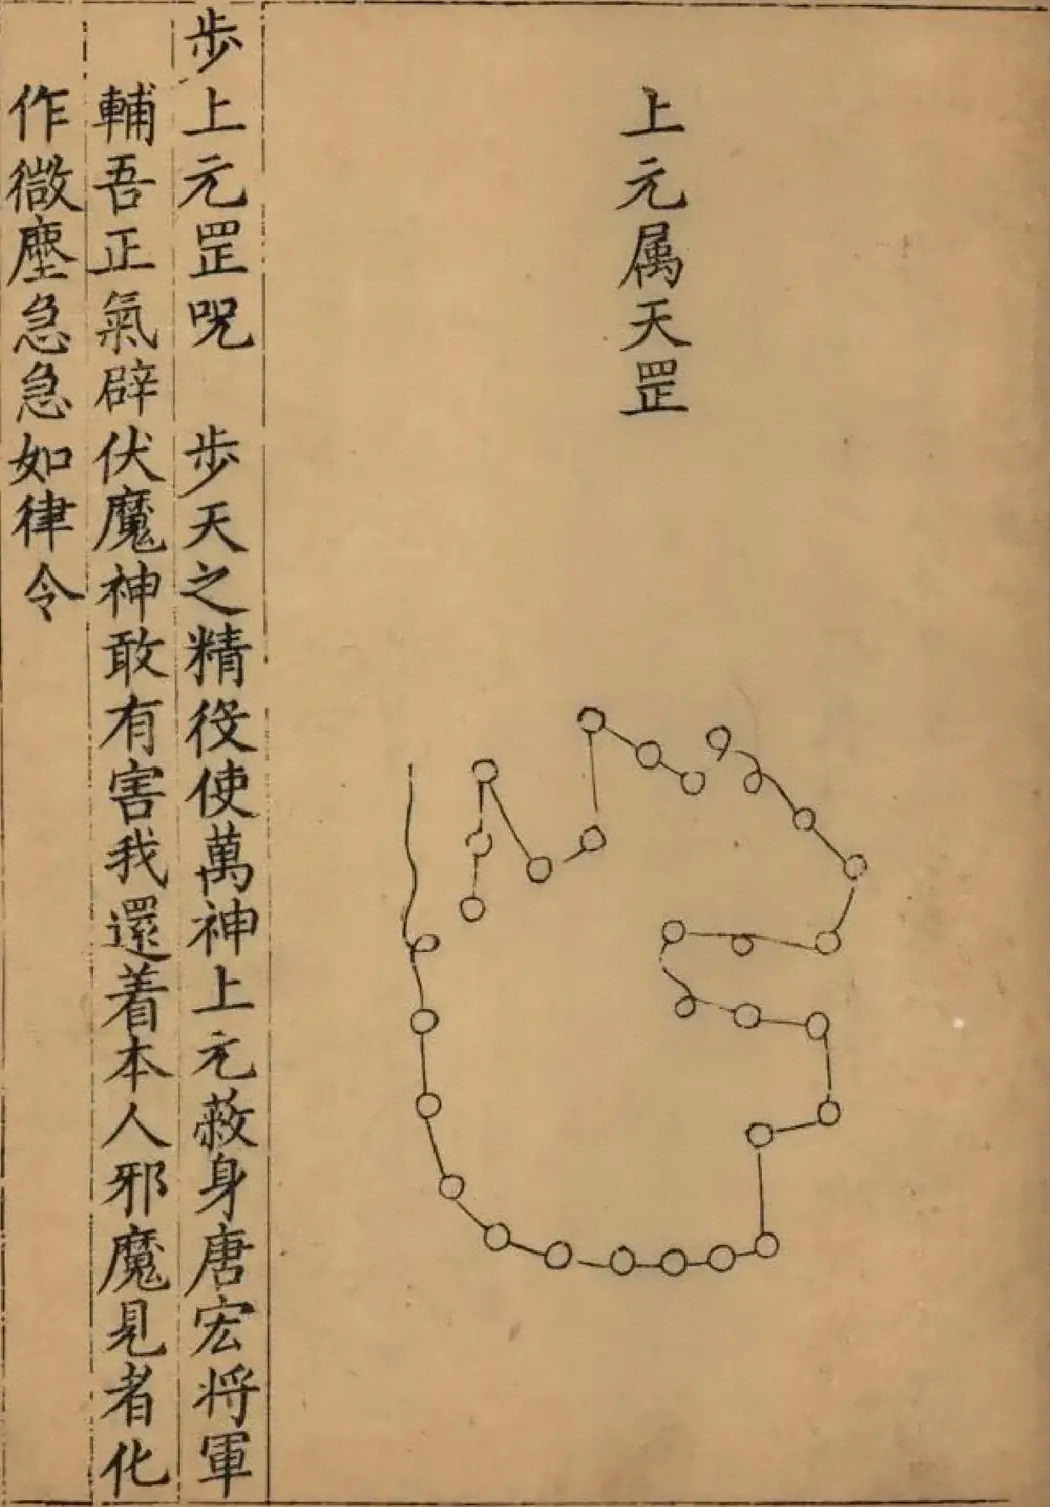 上元属天罡
步上元罡呪　步天之精役使萬神上元救身唐宏将軍
輔吾正氣辟伏魔神敢有害我還着本人邪魔見者化
作微塵急急如律令